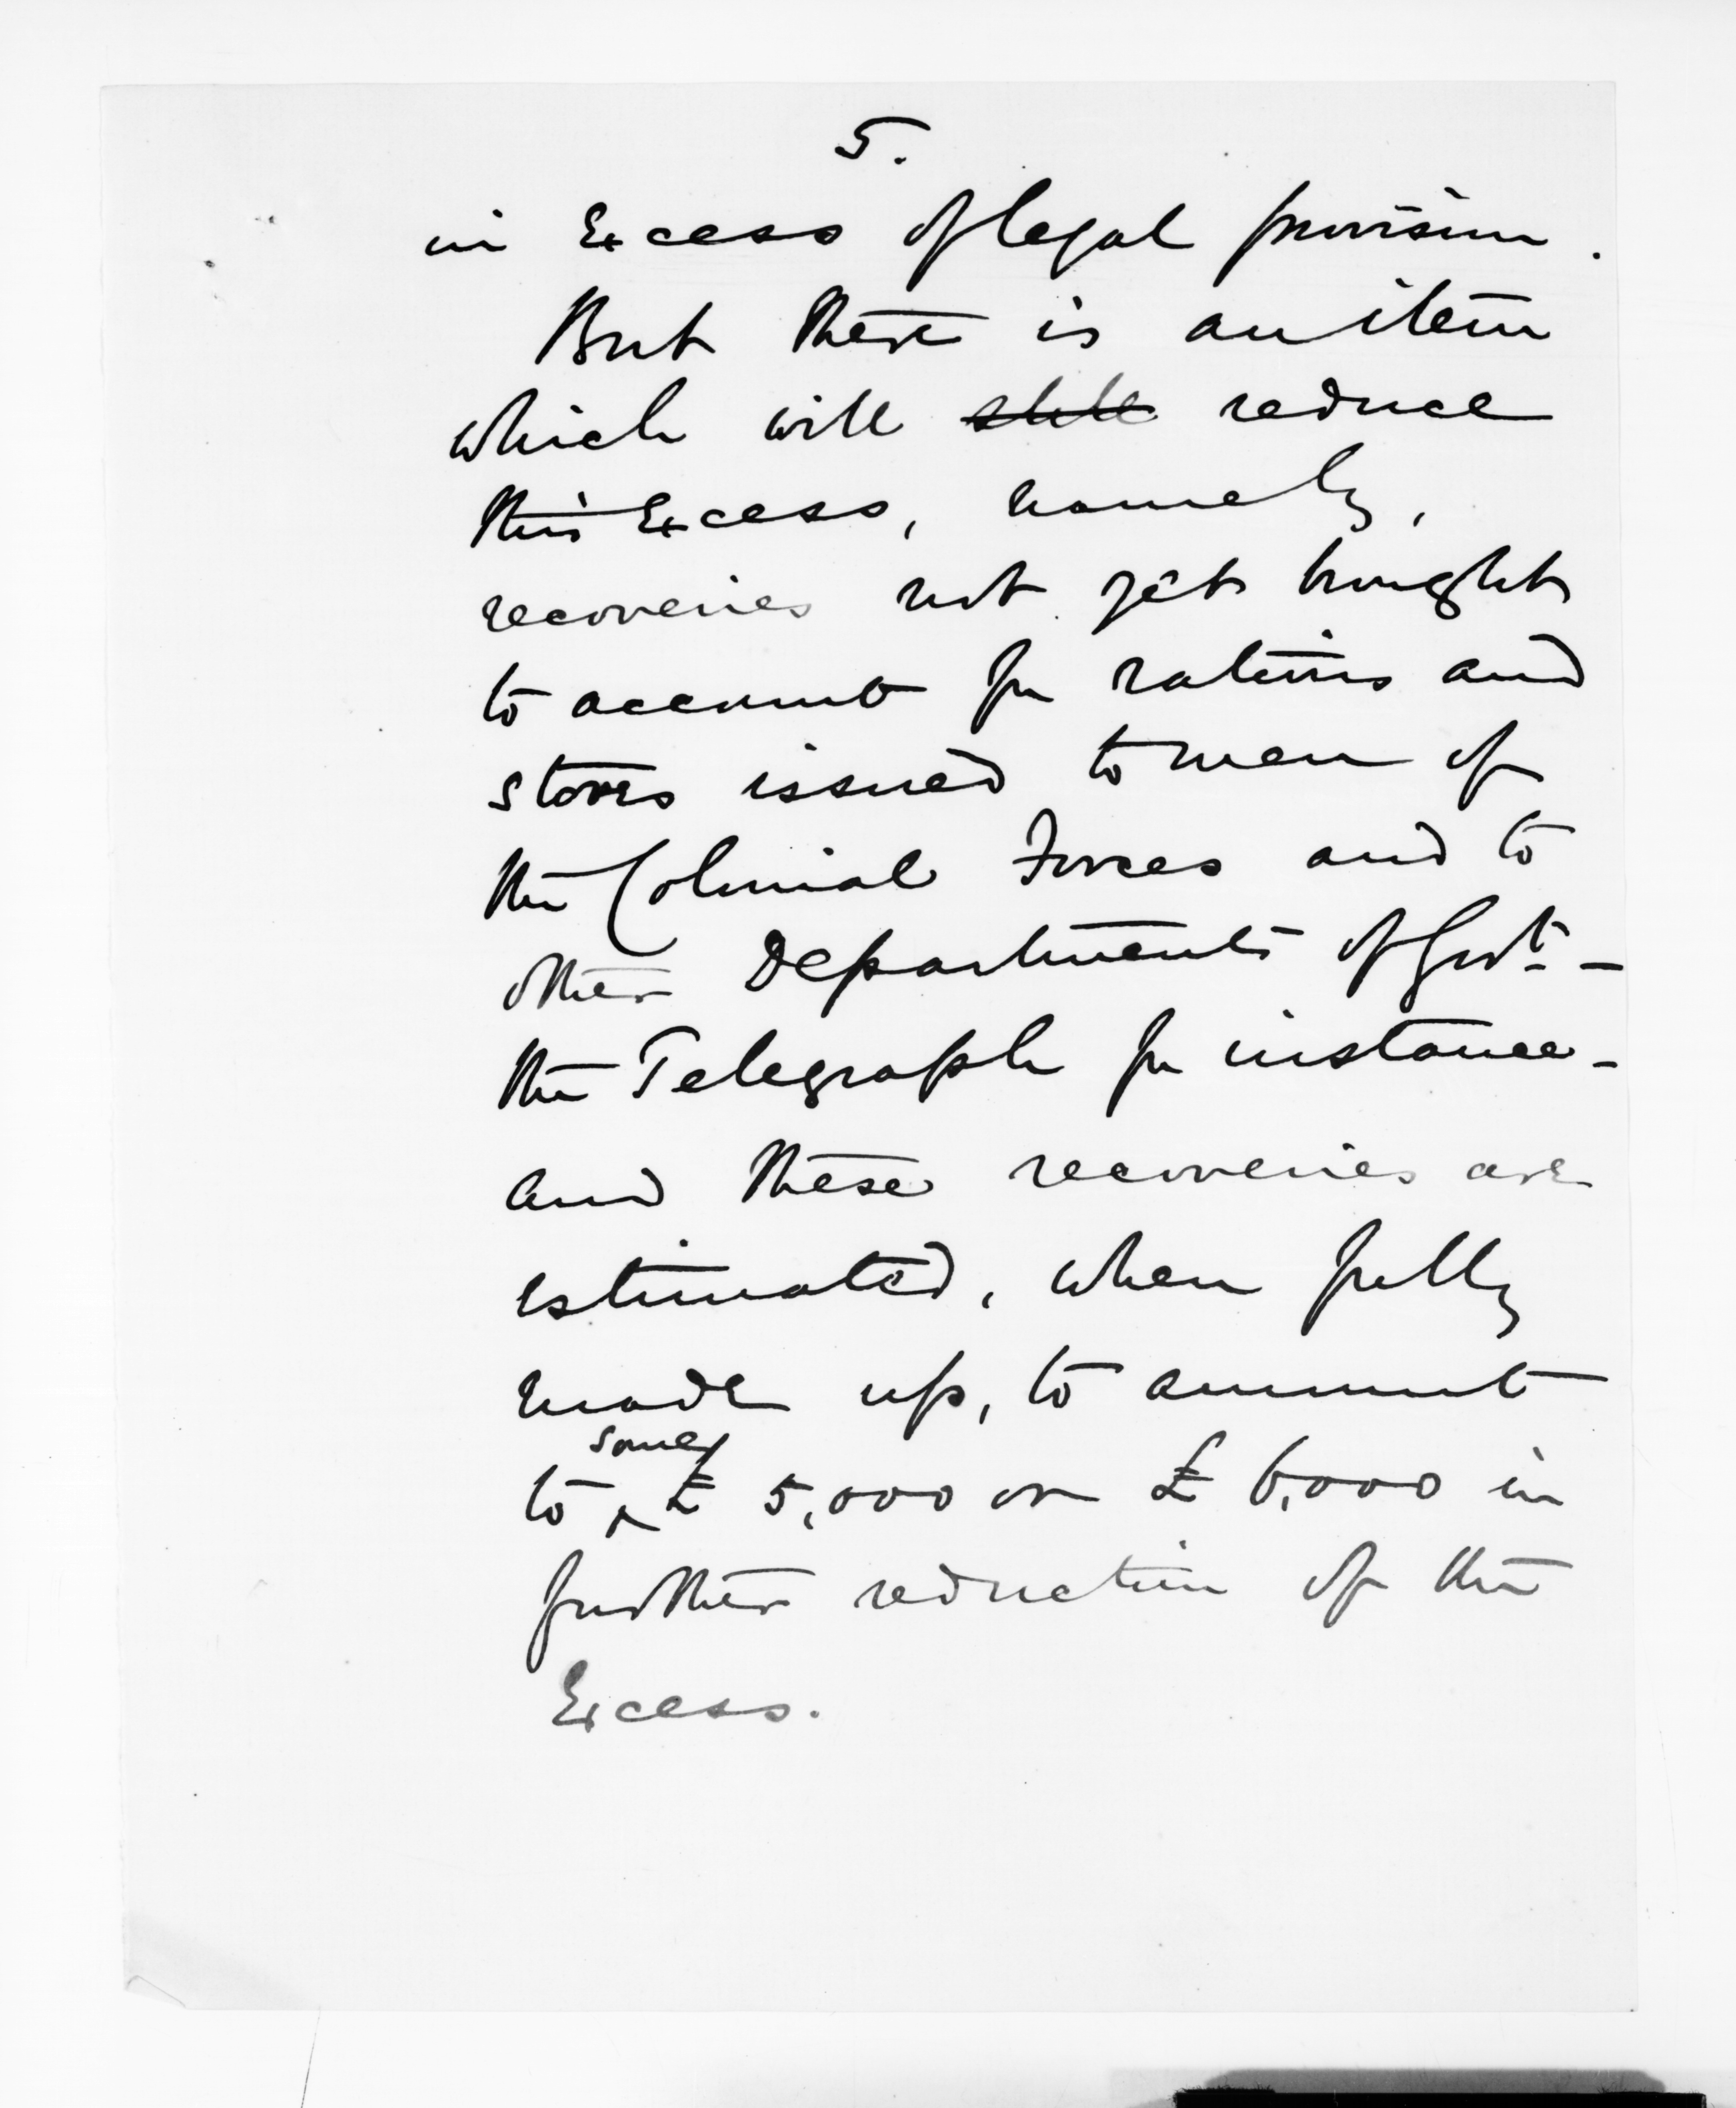 5.
in Excess of legal provision.
But there is an item
which will still reduce
this Excess, namely,
recoveries not yet brought
to account for rations and
stores issued to men of
the Colonial Forces and to
other Departments of Govt. -
the Telegraph for instance -
and these recoveries are
estimated, when fully
made up, to amount
some
to £ 5,000 or £ 6,000 in
further reduction of the
Excess.